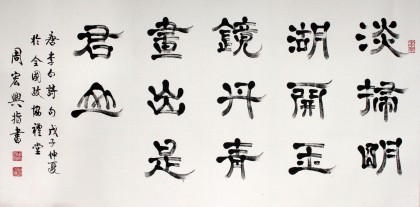 淡掃明
湖開玉
鏡丹青
畫出是
君山
唐李白詩句戊子仲夏
於全國政協禮堂
周宏興指書